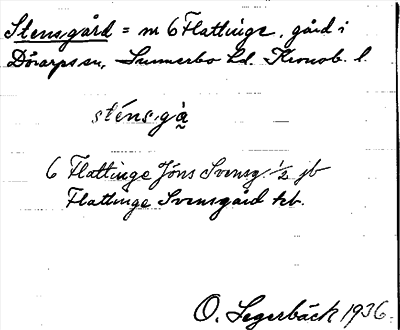 Stensgård = m 6 Flattinge, gård i
Dörarps sn, Sunnerbo hd. Kronob. l.
sténs,gå̀
6 Flattinge Jöns Svensg. 1/2 jb
Flattinge Svensgård kb.
O. Segerbäck 1936.